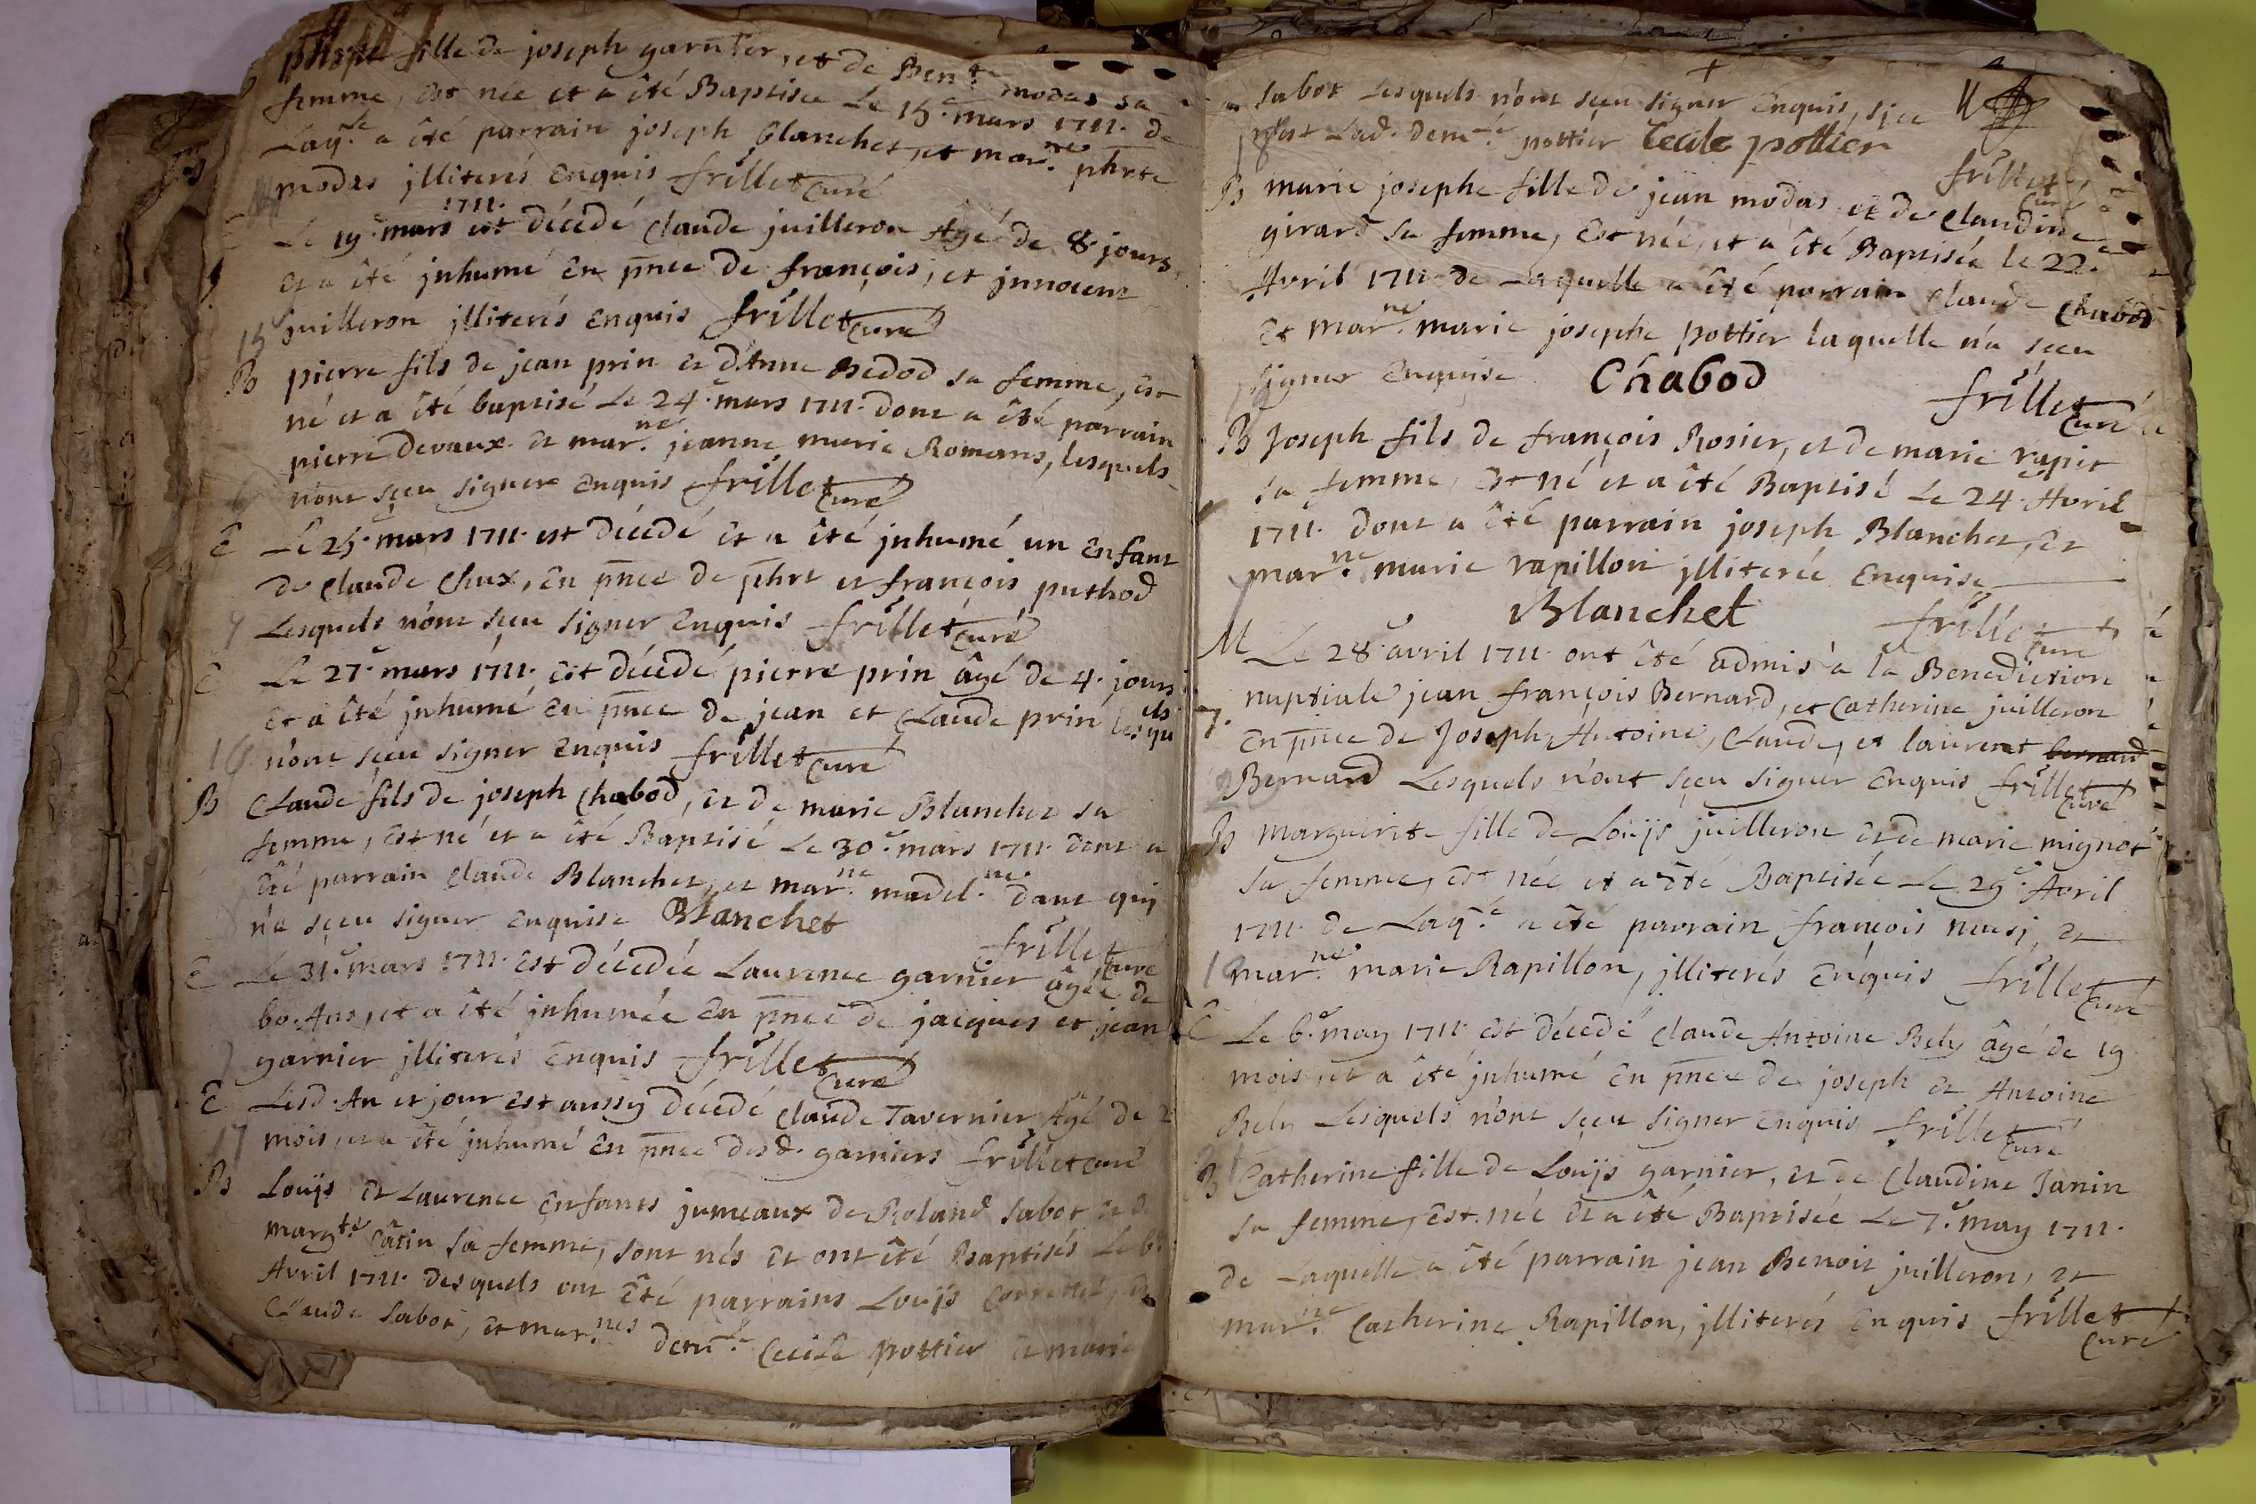 phrte fille de joseph garnier, et de Ben.te modas sa
femme, Est née et a été Baptisée Le 15.e mars 1711. de
Laq.le a été parrain joseph Blanchet, et mar.ne phrte
modas jlliterés Enquis frillet Curé
1711.
Le 19.e mars est décedé Claude juilleron Âgé de 8. jours
Et a été jnhumé En pnce de françois, et jnnocent
juilleron jlliterés Enquis frillet Curé
15
B pierre fils de jean prin et d'Anne Bedod sa femme, est
né et a été baptisé Le 24.e mars 1711. dont a été parrain
pierre Devaux et mar.ne jeanne marie Romans, lesquels
n'ont sçeu signer Enquis frillet Curé
E Le 25.e mars 1711. est décedé et a été jnhumé un Enfant
de Claude Chux, En pnce de phrt et françois puthod
Lesquels n'ont sçeu signer Enquis frillet Curé
E Le 27.e mars 1711. est décedé pierre prin âgé de 4. jours
Et a été jnhumé En pnce de jean et Claude prin lesquels
n'ont sçeu signer Enquis frillet Curé
16
B Claude fils de joseph Chabod, et de marie Blanchet sa
femme, Est né et a été Baptisé Le 30.e mars 1711. dont a
été parrain Claude Blanchet, et mar.ne madel.ne dant qui
n'a sçeu signer Enquise Blanchet
frillet Curé
E Le 31.e mars 1711. est décedée Laurence garnier âgée de
60. Ans, et a été jnhumée En pnce de jacques et jean
garnier jlliterés Enquis frillet Curé
E Lesd. An et jour est aussy décedé Claude Tavernier Âgé de 2
mois, et a été jnhumé En pnce desd. garniers frillet Curé
17
B Louijs et Laurence Enfants jumeaux de Roland Sabot et de
marg.te Catin sa femme, sont nés et ont été Baptisés Le 6.e
Avril 1711. desquels ont été parrains Louijs et
Claude Sabot, et mar.nes dem.le Cecile pottier et marie
Sabot Lesquels n'ont sçeu signer Enquis, si ce
n'est Lad. dem.le pottier Cecile pottier
frillet Curé
B marie josephe fille de jean modas et de Claudine
girard sa femme, Est née, et a été Baptisée le 22.e
Avril 1711. de Laquelle a été parrain Claude Chabod
Et mar.ne marie josephe pottier laquelle n'a sçeu
signer Enquise Chabod
frillet Curé
B Joseph fils de françois Rosier, et de marie rapit
sa femme, Est né et a été Baptisé Le 24.e Avril
1711. dont a été parrain joseph Blanchet, et
mar.ne marie rapillon jlliterée Enquise
Blanchet
frillet Curé
M Le 28.e avril 1711. ont été admis à la Benediction
nuptiale jean françois Bernard, et Catherine juilleron
7. En pnce de Joseph, Antoine, Claude, et laurent bernard
Bernard Lesquels n'ont sçeu signer Enquis frillet Curé
B marguerite fille de Louijs juilleron et de marie mignot
sa femme, est née et a été Baptisée Le 29.e Avril
1711. de Laq.le a été parrain françois et
mar.ne marie Rapillon, jlliterés Enquis frillet Curé
E Le 6.e may 1711. Est décedé Claude Antoine Bely âgé de 19
mois, et a été jnhumé En pnce de joseph et Antoine
Bely Lesquels n'ont sçeu signer Enquis frillet Curé
B Catherine fille de Louijs garnier, et de Claudine Janin
sa femme, est née et a été Baptisée Le 7.e may 1711.
de Laquelle a été parrain jean Benoit juilleron, et
mar.ne Catherine Rapillon, jlliterés Enquis frillet Curé